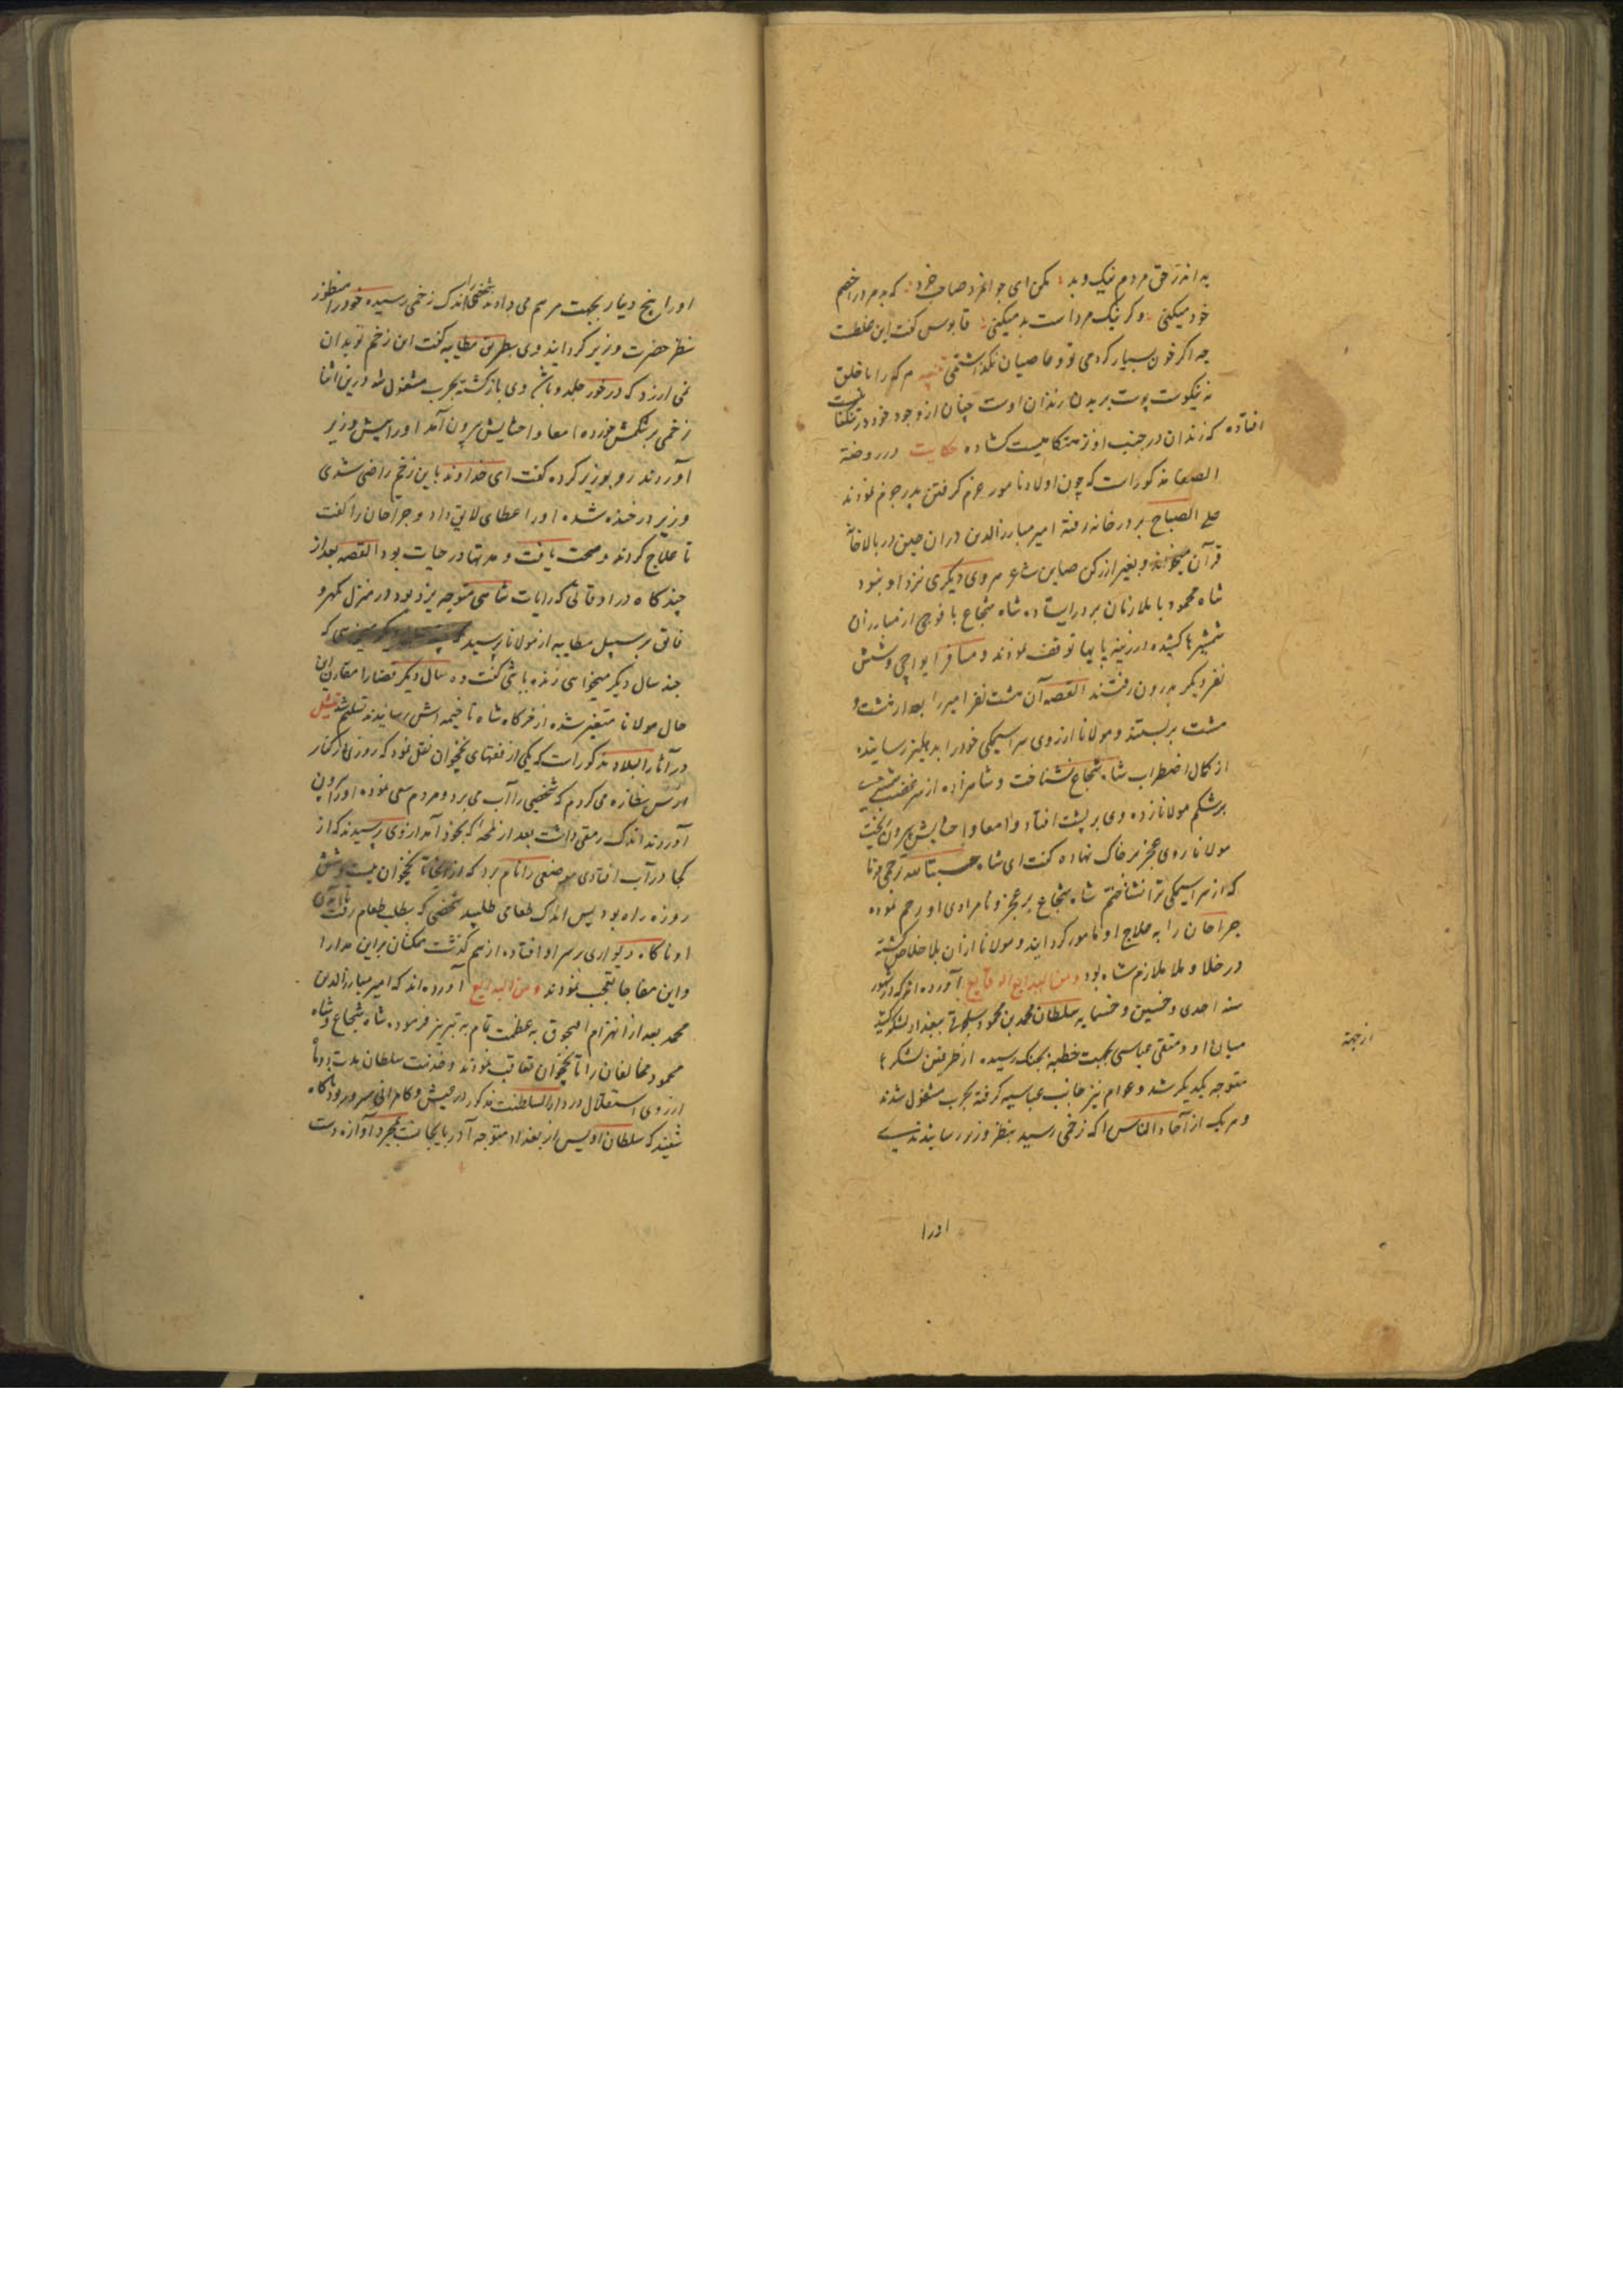 بد اندر حق مردم نیک و بد مکن ای جوانمرد صاحب خرد که بد مرد را خصم
خود میکنی وکر نیک مرداست بد میکنی قابوس کفت این غلطست
چه اکر خون بسیار کردمی تو و عاصیان نکذاشتمی هر که را با خلق
نه نیکوست پوست بر بدن زندان اوست چنان از وجود خود در تنکنا
افتاده که زندان در جنب او نزهتکاهیست کشاده حکایت در روضة
الصفا مذکورات که چون اولاد نامور عزم کرفتن پدر جزم نمودند
علی الصباح بر در خانه رفته امیر مبارزالدین در ان حین در بالاخانه
قرآن میخواند و بغیر از رکن صاین شاعر هروی دیکری نزد او نبود
شاه محمود با ملازمان بر در ایستاده شاه شجاع با فوجی از مبارزان
شمشیرها کشیده در زینه پایها توقف نمودند و مسافر ایواجی و شش
نفر دیکر بدرون رفتند القصه آن هشت نفر امیر را بعد از مشت و
مشت بربستند و مولانا از روی سراسیمکی خود را بدهلیز رسانیده
از کمال اضطراب شاه شجاع نشناخت و شاهزاده از سر غضب شمشیری
برشکم مولانا زده وی بر پشت افتاد و امعا و احشایش بیرون ریخت
مولانا روی عجز بر خاک نهاده کفت ای شاه حسبتا لله ترحمی فرما
که از سراسیمکی ترا نشناختم شاه شجاع بر عجز و نامرادی او رحم نموده
جراحان را به علاج او مامور کردانید و مولانا از آن بلا خلاص کشته
در خلا و ملا ملازم شاه بود و من البدایع الوقایع آورده اند که در شهور
سنه احدی و خمسین و خمسمایه سلطان محمد بن محمود سلجوقی ببغداد لشکر کشید
از جهة
میان او و متقی عباسی بجهت خطبه بجنک رسیده از طرفین لشکرها
متوجه یکدیکر شد و عوام نیز جانب عباسیه کرفته بحرب مشغول شدند
و هر یک از آحاد الناس را که زخمی رسید بنظر وزیر رسانیدندی
اورا
اورا پنج دینار بجهت مرهم می دادند شخصی را اندک زخمی رسیده خود را منظور
نظر حضرت وزیر کردانید وی بطریق مطایبه کفت این زخم تو بدان
نمی ارزد که در خور جلدو باشد وی بازکشته بحرب مشغول شد درین اثنا
زخمی بر شکمش خورده امعا و احشایش بیرون آمد اورا پیش وزیر
آوردند رو بوزیر کرده کفت ای خداوند باین زخم راضی شدی
وزیر در خنده شده اورا عطای لایق داد و جراحان را کفت
تا علاج کردند و صحت یافت و مدتها در حیات بود القصه بعد از
چند کاه در اوقاتی که رایات شاهی متوجه یزد بود در منزل مهرو
فاتق بر سبیل مطایبه از مولانا پرسید که
چند سال دیکر میخواهی زنده باشی کفت ده سال دیکر قضارا مقارن این
حال مولانا متغیر شده از خرکاه شاه تا خیمه اش رسانیدند تسلیم شد تمثیل
در آثار البلاد مذکورات که یکی از فقهای نخجوان نقل نمود که روزی از کنار
ارس نظاره می کردم که شخصی را آب می برد و مردم سعی نموده اورا بیرون
آوردند اندک رمقی داشت بعد از لمحه که بخود آمد از وی پرسیدند که از
کجا در آب افتادی موضعی را نام برد که از آنجا تا نخجوان بیست و شش
روزه راه بود پس اندک طعامی طلبید شخصی که بطلب طعام رفت تا آمدن
او ناکاه دیواری بر سر او افتاده از هم کذشت همکنان بر این مدارا
واین مفاجا تعجب نمودند و من البدایع آورده اند که امیر مبارزالدین
محمد بعد از انهزام اخیجوق به عظمت تمام به تبریز فرموده شاه شجاع و شاه
محمود مخالفان را تا نخجوان تعاقب نمودند و خدمت سلطان مدت دو ماه
از روی استقلال در دارالسلطنت مذکور در عیش و کامرانی بسر برد ناکاه
شنید که سلطان اویس از بغداد متوجه آذربایجانست بمجرد آوازه دست